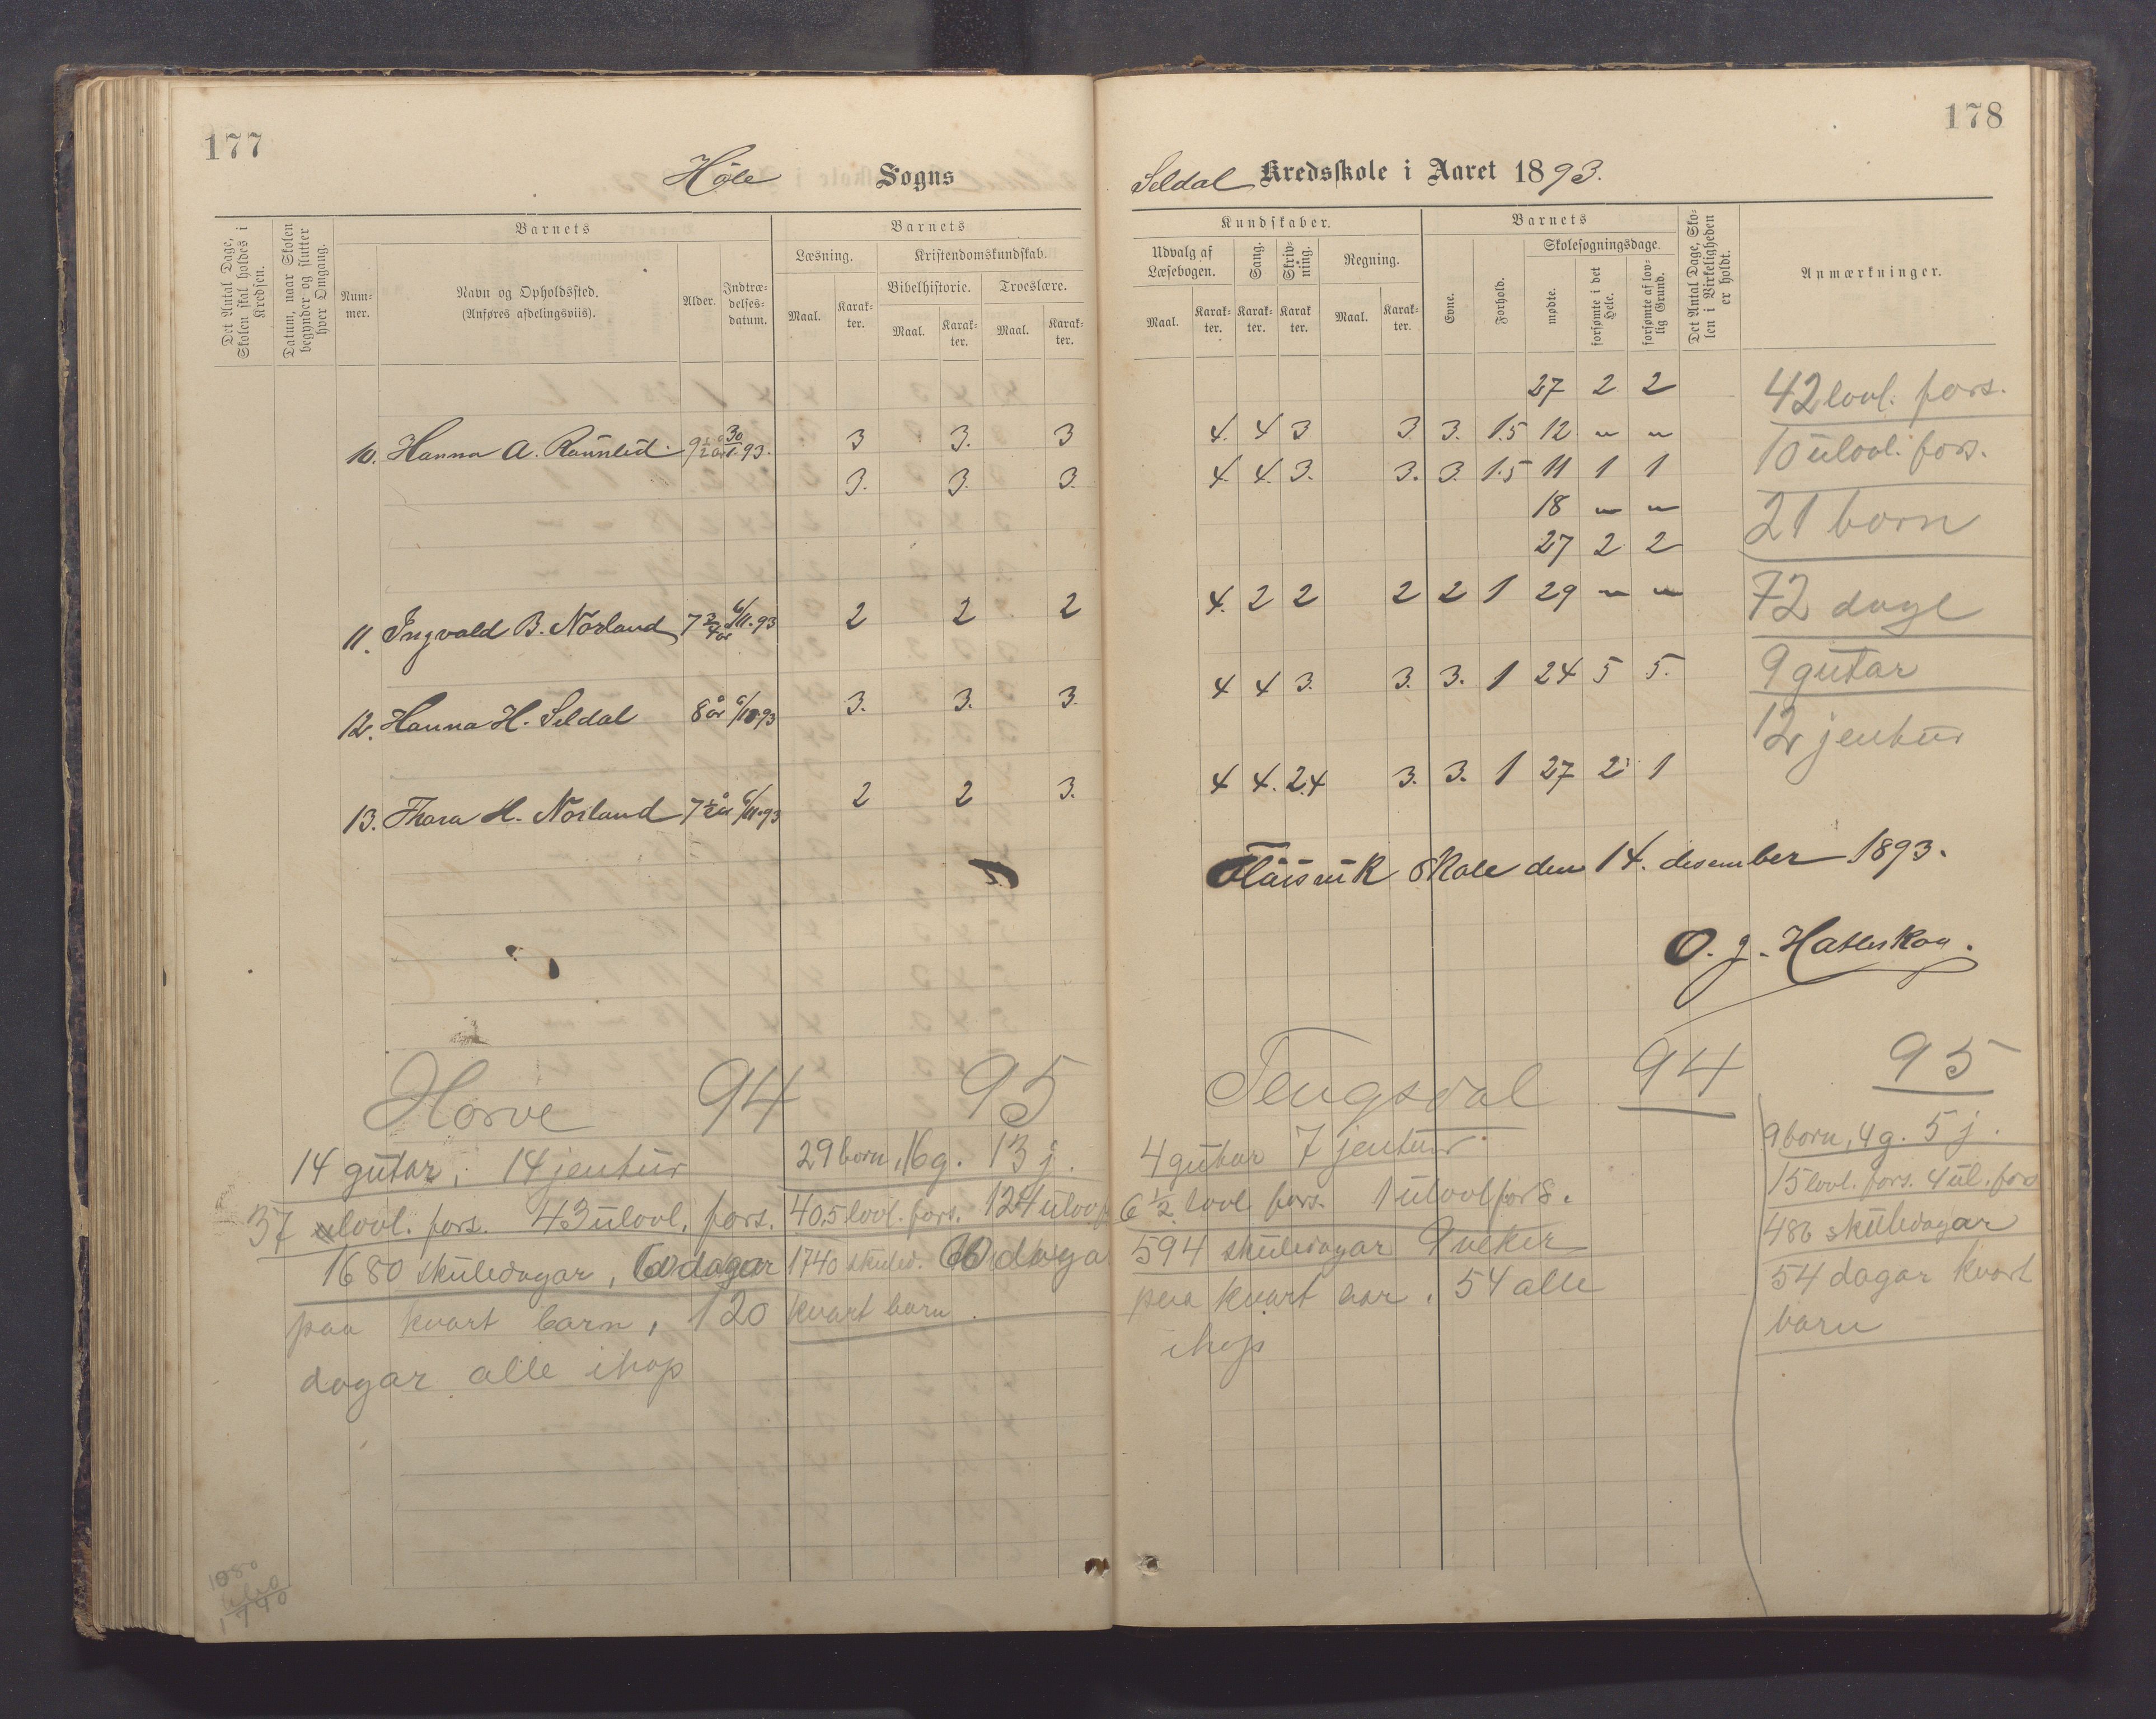 177
Höle Sogns
Det Antal Dage, Skolen skal holdes i Kredsen.
Datum, naar Skolen begynder og slutter hver Omgang.
Barnets
Num-mer.
Navn og Opholdssted.
(Anføres afdelingsviis).
Alder.
Indtræ-delses-datum.
Barnets
Læsning.
Kristendomskundskab.
Bibelhistorie.
Troeslære.
Maal.
Karak-ter.
Maal.
Karak-ter.
Maal.
Karak-ter.
10. Hanna A. 9½ år 93. 3 3. 3
3. 3. 3.
11. Ingvald B. Norland 7¾ år 6/11.93 2 2 2
12. Hanna H. Seldal 8 år 6/11.93 3. 3. 3.
13. Thora H. Norland 7½ år 6/11.93 2 2 3.
Horve 94 95
14 gutar, 14 jentur
37 lovl. fors. 43 ulovl. fors.
1680 skuledagar, 60 dagar
paa kvart barn, 120
dagar alle ihop
29 born, 16 g. 13 j.
40,5 lovl. fors. 124 ulovl f
1740 skuled. 60 daga
kvart barn
1740
178
Seldal Kredsskole i Aaret 1893.
Kundskaber.
Udvalg af Læsebogen.
Sang.
Skriv-ning.
Regning.
Maal.
Karak-ter.
Karak-ter.
Karak ter.
Maal.
Karak-ter.
Barnets
Evne.
Forhold.
Skolesøgningsdage.
mødte.
forsømte i det Hele.
forsømte af lov-lig Grund.
Det Antal Dage, Sko-len i Virkeligheden er holdt.
Anmærkninger.
27 2 2
4. 4 3 3. 3. 1.5 12 " "
4. 4. 3. 3. 3. 1.5 11 1 1
18 " "
27 2 2
4. 2 2 2 2 1 29 " "
4 4 3. 3. 3. 1 24 5 5.
4 4. 2.4 3. 3. 1 27 2 1
42 lovl. fors.
10 ulovl. fors.
21 born
72 dage
9 gutar
12 jentur
skole den 14. desember 1893.
O. J. Hatleskog.
Tengsdal 94 95
4 gutar 7 jentur
6½ lovl. fors. 1 ulovl fors.
594 skuledagar 9 veker
paa kvart aar, 54 alle
ihop
9 born, 4 g. 5 j.
15 lovl. fors. 4 ul. fors
486 skuledagar
54 dagar kvart
barn